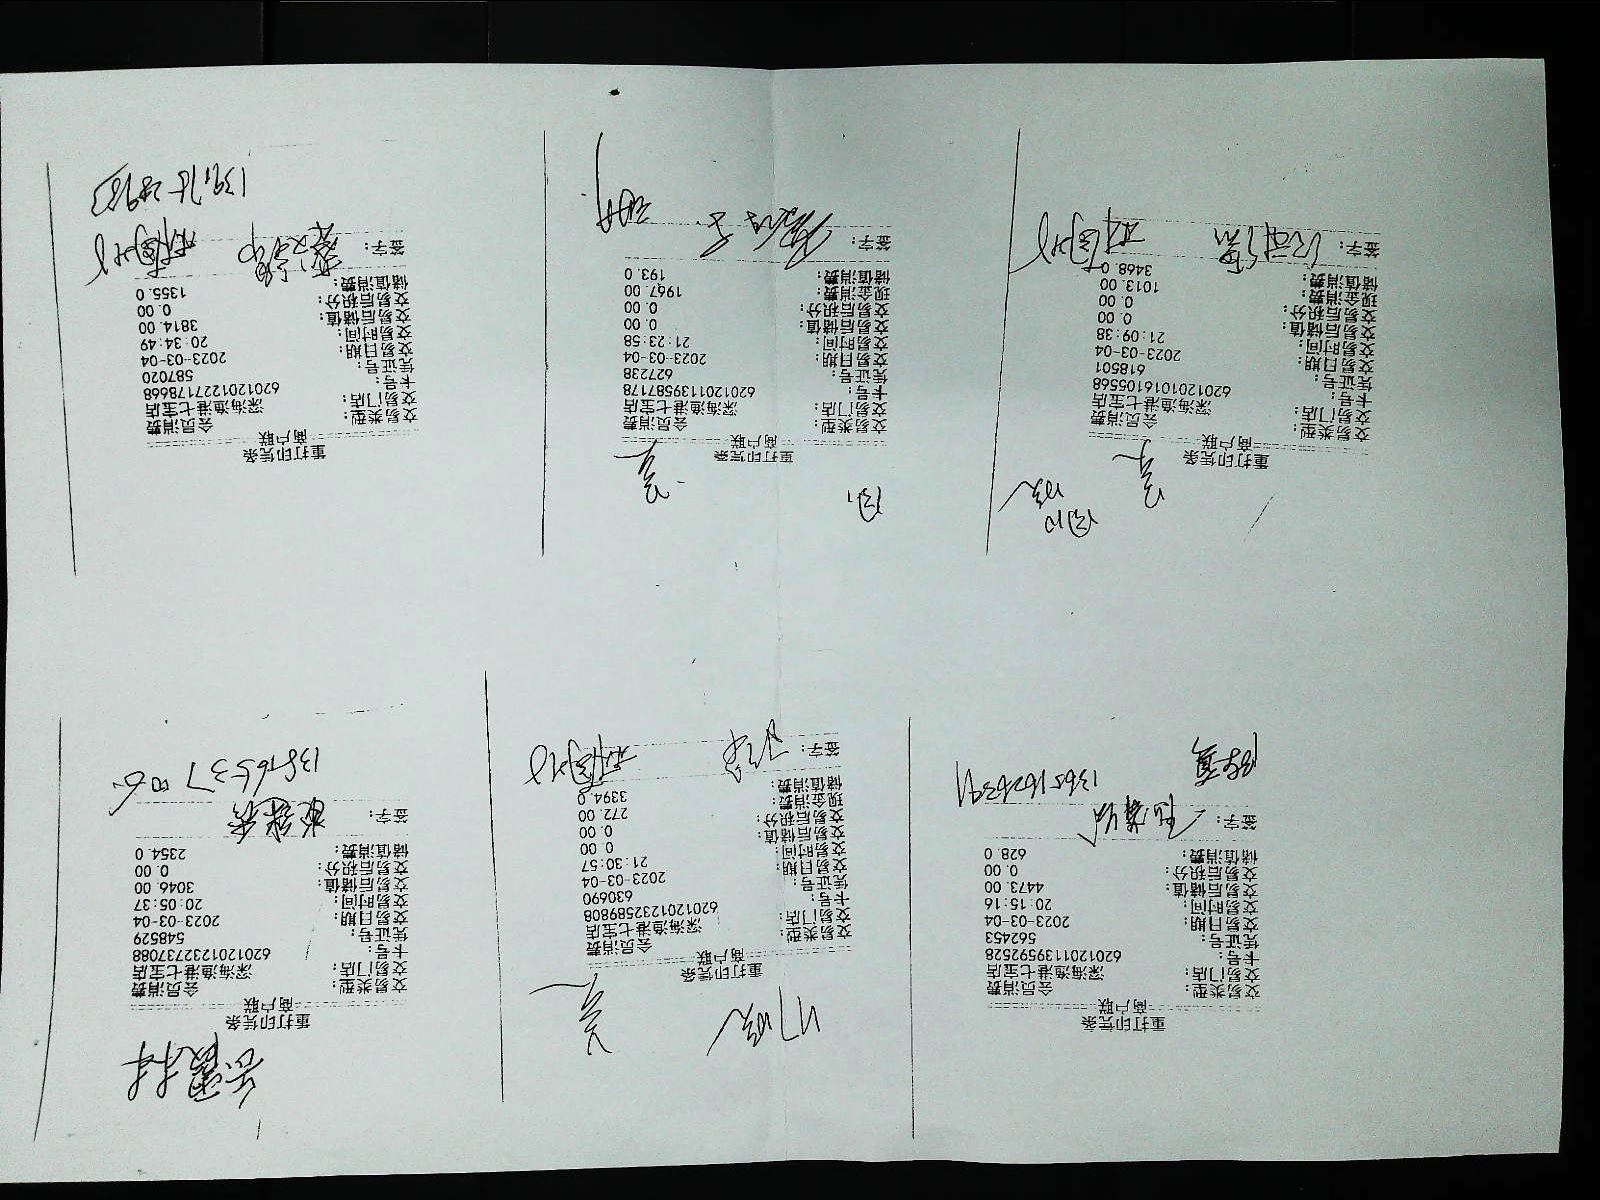 重打印凭条
商户联
交易类型: 会员消费
交易门店: 深海渔港七宝店
卡号: 6201201139592528
凭证号: 562453
交易日期: 2023-03-04
交易时间: 20:15:16
交易后储值: 4473.00
交易后积分: 0.00
储值消费: 628.0
签字:
重打印凭条
商户联
交易类型: 会员消费
交易门店: 深海渔港七宝店
卡号: 6201201232589808
凭证号: 630690
交易日期: 2023-03-04
交易时间: 21:30:57
交易后储值: 0.00
交易后积分: 0.00
现金消费: 272.00
储值消费: 3394.0
签字:
重打印凭条
商户联
交易类型: 会员消费
交易门店: 深海渔港七宝店
卡号: 6201201232737088
凭证号: 548529
交易日期: 2023-03-04
交易时间: 20:05:37
交易后储值: 3046.00
交易后积分: 0.00
储值消费: 2354.0
签字:
重打印凭条
商户联
交易类型: 会员消费
交易门店: 深海渔港七宝店
卡号: 6201201016105568
凭证号: 618501
交易日期: 2023-03-04
交易时间: 21:09:38
交易后储值: 0.00
交易后积分: 0.00
现金消费: 1013.00
储值消费: 3468.0
签字:
重打印凭条
商户联
交易类型: 会员消费
交易门店: 深海渔港七宝店
卡号: 6201201139587178
凭证号: 627238
交易日期: 2023-03-04
交易时间: 21:23:58
交易后储值: 0.00
交易后积分: 0.00
现金消费: 1967.00
储值消费: 193.0
签字:
重打印凭条
商户联
交易类型: 会员消费
交易门店: 深海渔港七宝店
卡号: 6201201227178668
凭证号: 587020
交易日期: 2023-03-04
交易时间: 20:34:49
交易后储值: 3814.00
交易后积分: 0.00
储值消费: 1355.0
签字: